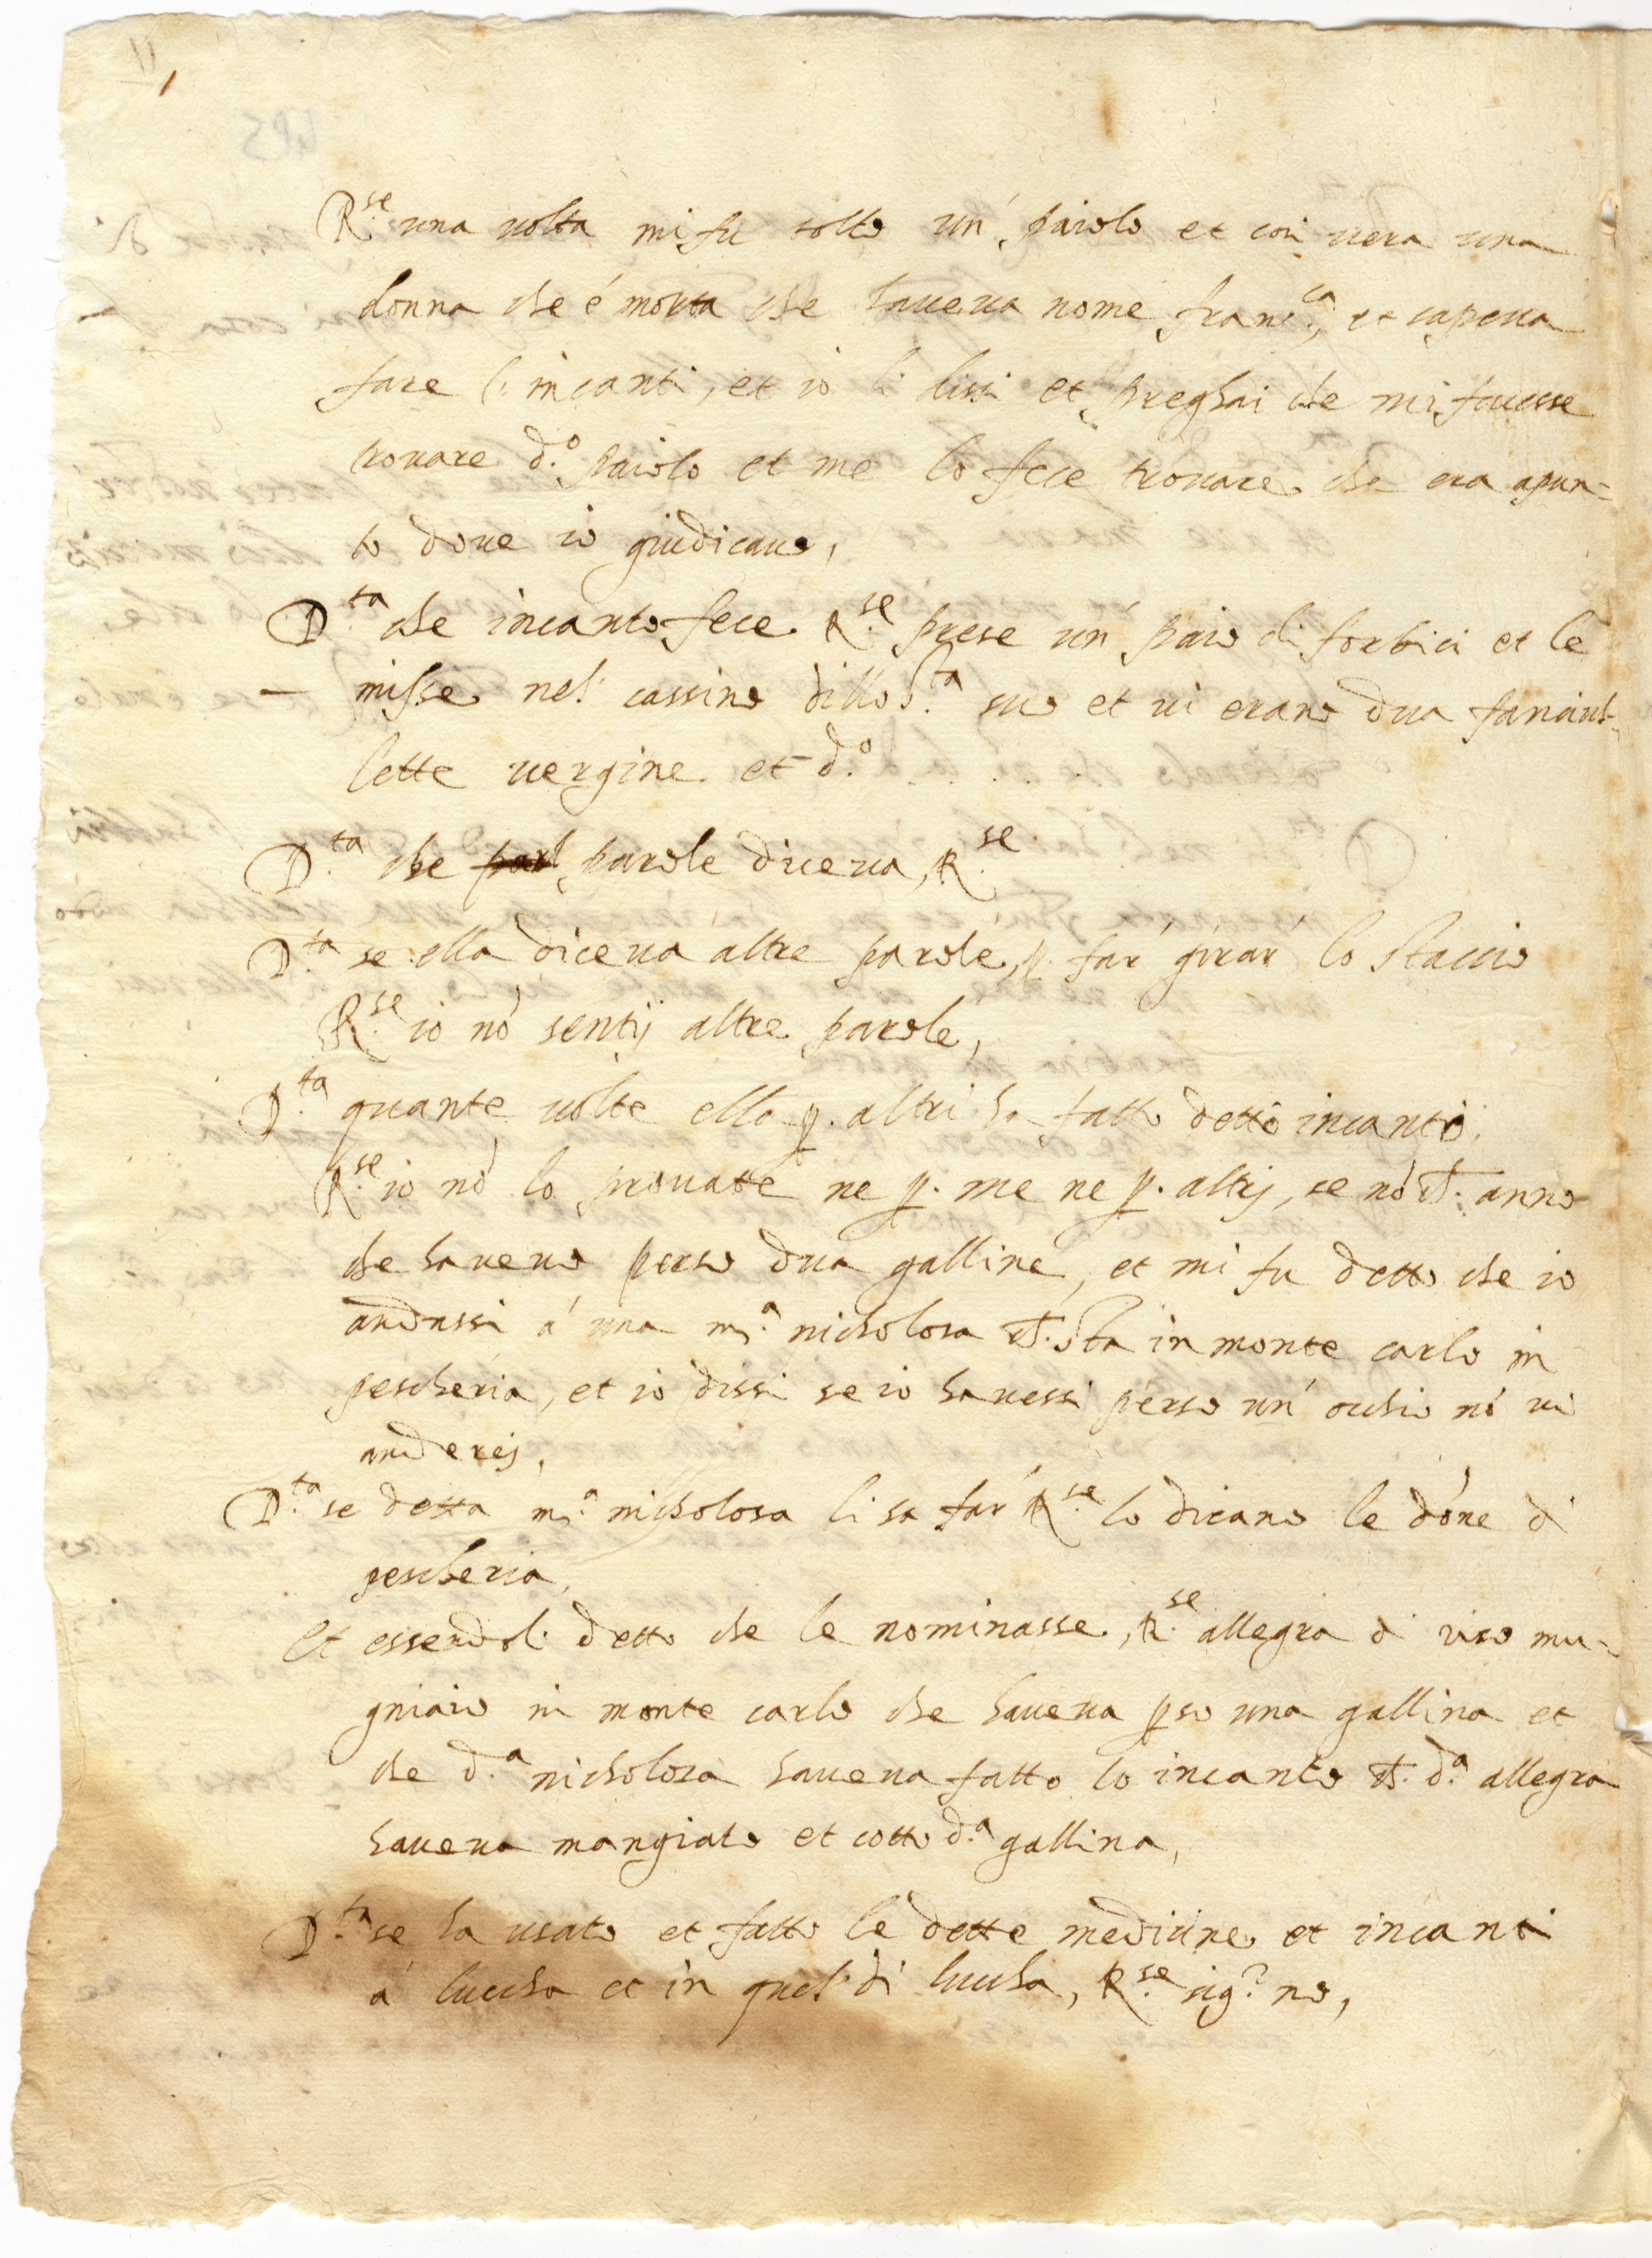 R.se una uolta mi fu tolto un' paiolo et cosi u'era una
donna che é morta che haueua nome fran.ca, et sapeua
fare l'incanti, et io li dissi et preghai che mi facesse
trouare d.o paiolo et me lo fece trouare che era apun=
to doue io giudicauo,
D.ta che incanto fece R.se prese un' paio di forbici et le
misse nel' cassino dello sta.o suo et ui erano dua fanciul=
lette uergine et d.o . . . . .
D.ta che parole diceua, R.se
D.ta se ella diceua altre parole, p. far' girar' lo staccio
R.se io nó sentij altre parole,
D.ta quante uolte ella p. altri ha fatto detto incanto,
R.se io nó lo prouate ne p. me ne p. altrj, se nó ch. anno
che haueuo perso dua galline, et mi fu detto che io
andassi á una m.a nicholosa ch. sta in monte carlo in
pescheria, et io dissi se io hauessi perso un' ochio nó ui
anderej,
D.ta se detta m.a nicholosa li sa far' R.se lo dicano le dóne di
pescheria,
Et essendoli detto che le nominasse, R.se allegra di uico mu=
gniaio in monte carlo che haueua pso una gallina et
che d.a nicholosa haueua fatto lo incanto ch. d.a allegra
haueua mangiato et cotto d.a gallina,
D.ta se ha usato et fatto le dette medicine et incanti
á luccha et in quel' di luccha, R.se sig.r no,